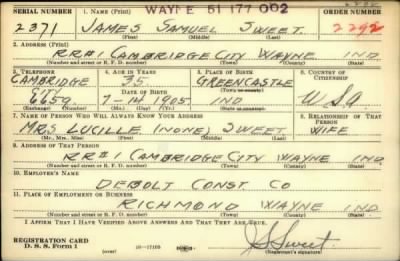 WAYNE 51 177 002
SERIAL NUMBER 1. NAME (Print) ORDER NUMBER
2371 JAMES SAMUEL SWEET. 2292
(First) (Middle) (Last)
2. ADDRESS (Print)
RR#1 CAMBRIDGE CITY WAYNE IND.
(Number and street or R. F. D. number) (Town) (County) (State)
3. TELEPHONE 4. AGE IN YEARS 5. PLACE OF BIRTH 6. COUNTRY OF CITIZENSHIP
CAMBRIDGE 35 GREENCASTLE
DATE OF BIRTH (Town or county)
6659 7-14-1905 IND U.S.A
(Exchange) (Number) (Mo.) (Day) (Yr.) (State or country)
7. NAME OF PERSON WHO WILL ALWAYS KNOW YOUR ADDRESS 8. RELATIONSHIP OF THAT PERSON
MRS. LUCILLE (NONE) SWEET WIFE
(Mr., Mrs., Miss) (First) (Middle) (Last)
9. ADDRESS OF THAT PERSON
RR#1 CAMBRIDGE CITY WAYNE IND.
(Number and street or R. F. D. number) (Town) (County) (State)
10. EMPLOYER'S NAME
DEBOLT CONST. CO
11. PLACE OF EMPLOYMENT OR BUSINESS
RICHMOND WAYNE IND
(Number and street or R. F. D. number) (Town) (County) (State)
I AFFIRM THAT I HAVE VERIFIED ABOVE ANSWERS AND THAT THEY ARE TRUE.
REGISTRATION CARD
D. S. S. Form 1 16—17105
J S Sweet
(Registrant's signature)